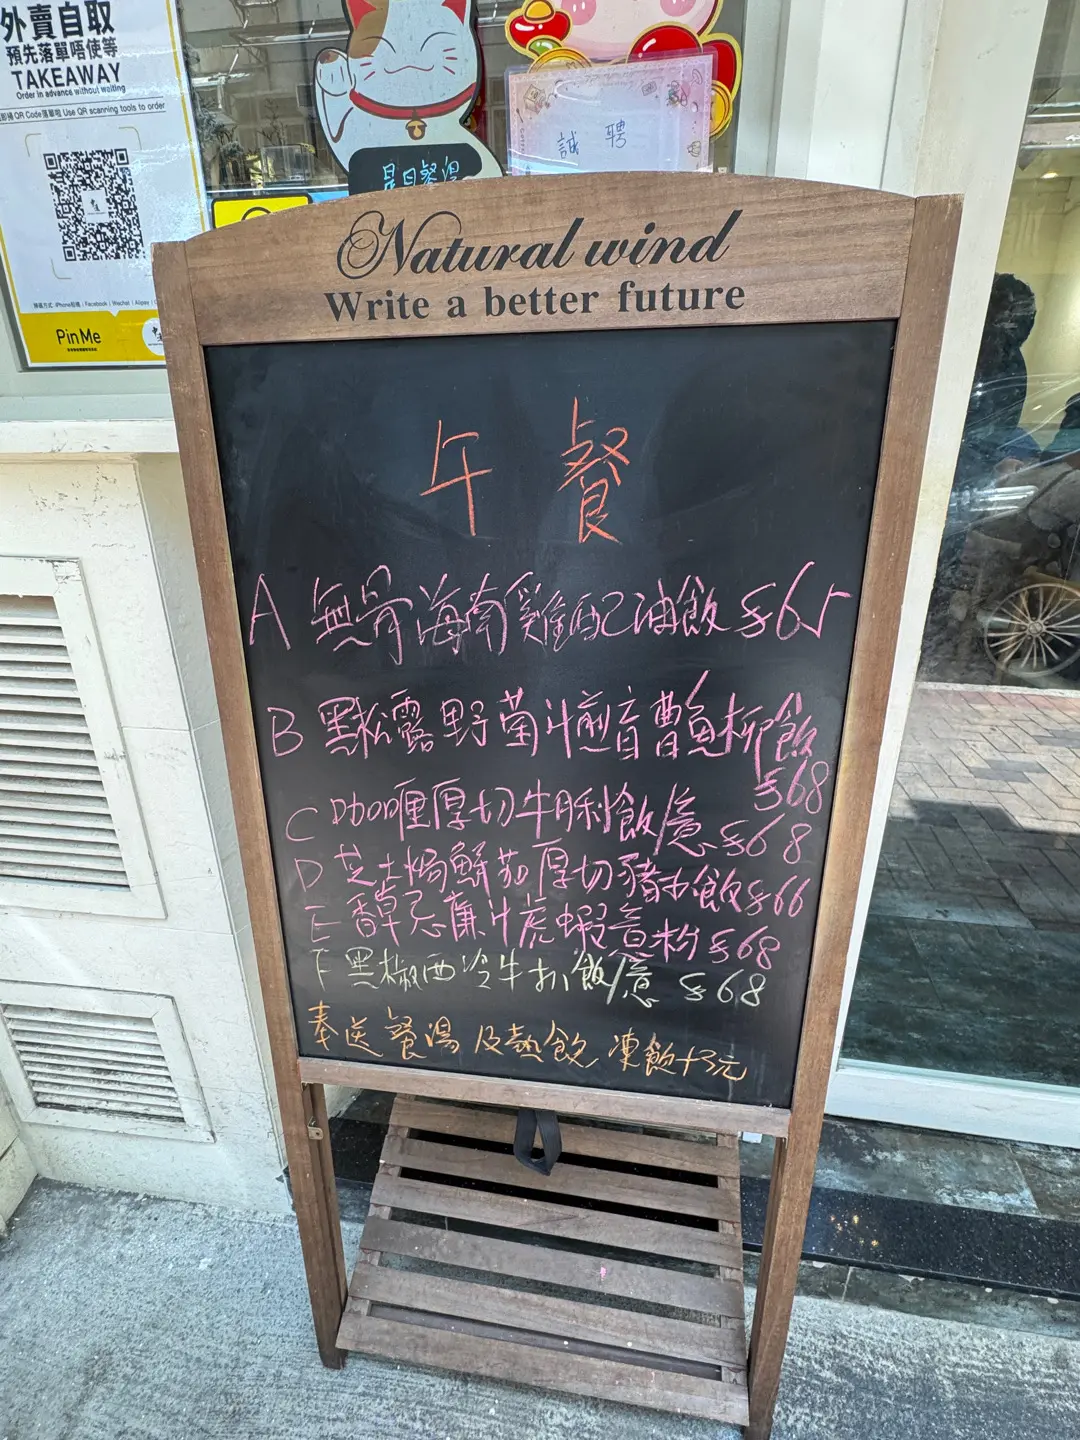 外賣自取
預先落單唔使等
TAKEAWAY
Order in advance without waiting
Use QR scanning tools to order
PinMe
誠聘
是日餐湯
Natural wind
Write a better future
午餐
A 無骨海南雞配油飯 $65
B 黑松露野菌汁煎盲曹魚柳飯
$68
C 咖喱厚切牛脷飯/意 $68
D 芝士焗鮮茄厚切豬扒飯 $66
E 香草忌廉汁虎蝦意粉 $68
F 黑椒西冷牛扒飯/意 $68
奉送餐湯及熱飲, 凍飲+3元